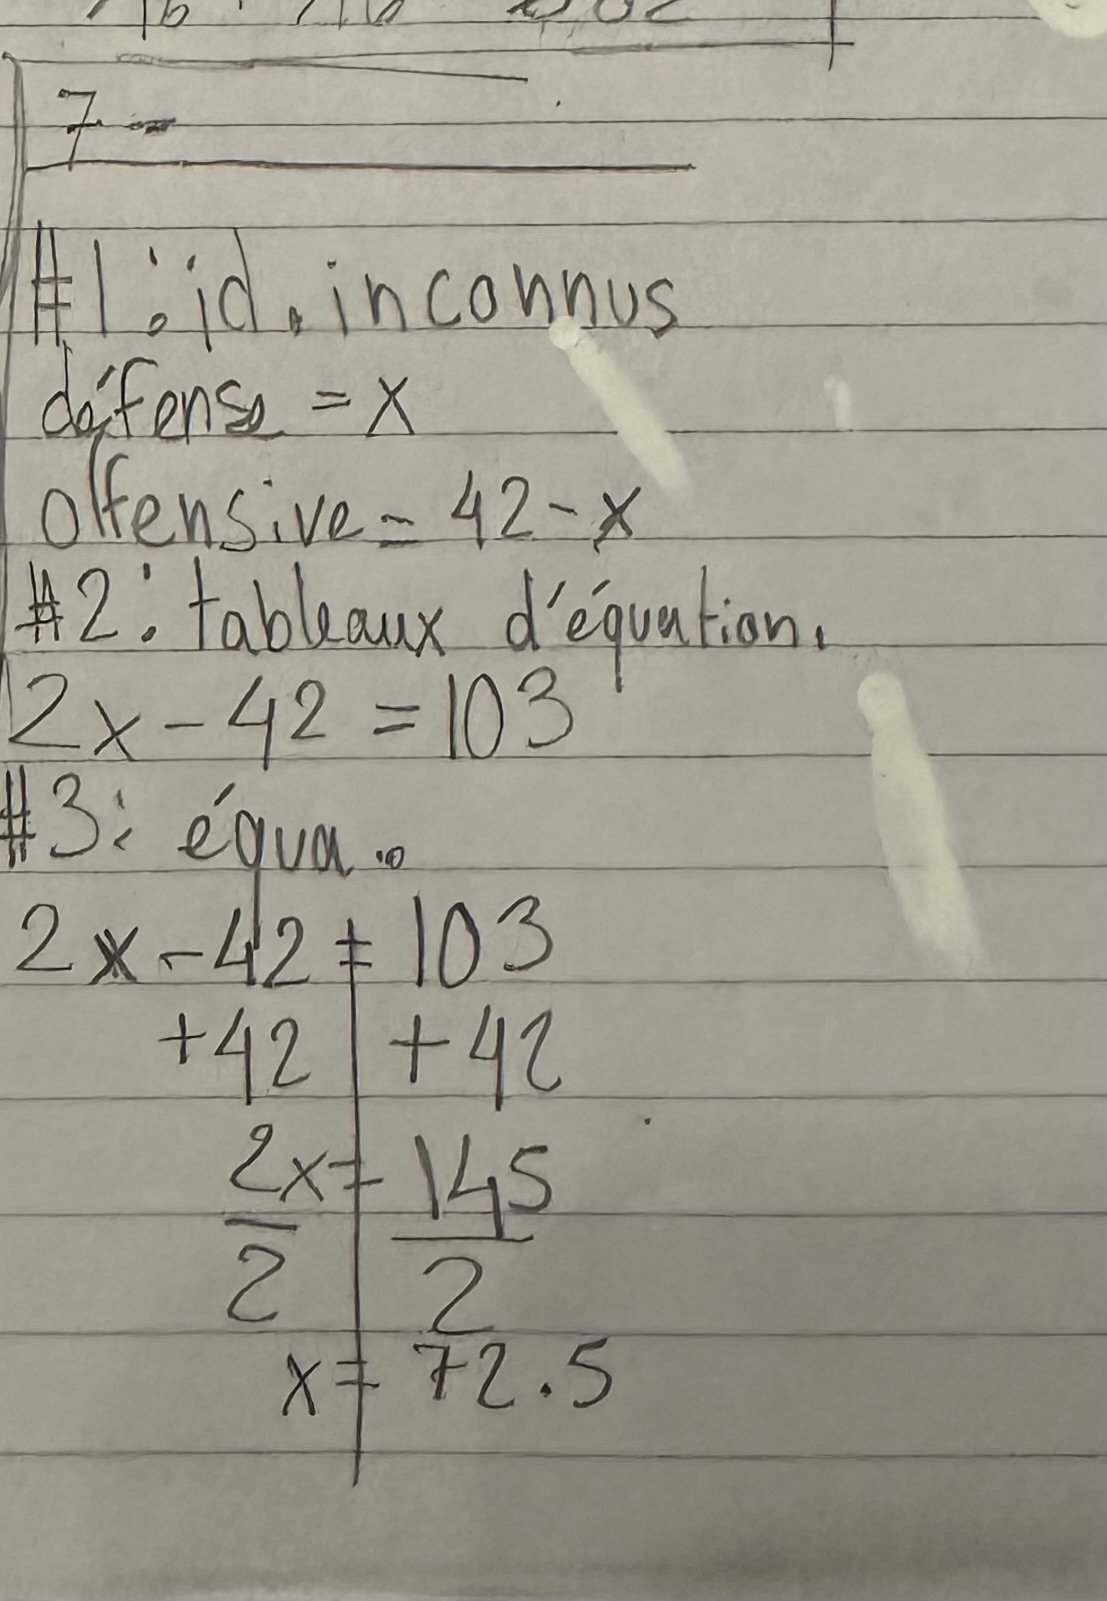 7-
#1: id. inconnus
défense = x
offensive = 42-x
#2: tableaux d'équation.
2x-42 = 103
#3: équa..
2x-42 = 103
+42 +42
2x = 145
2 2
x = 72.5